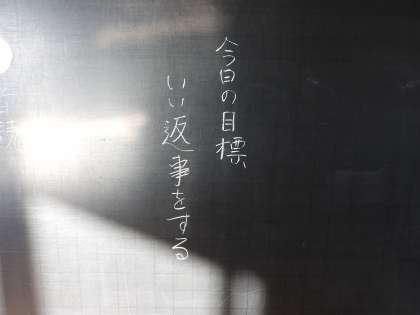 今日の目標
いい返事をする